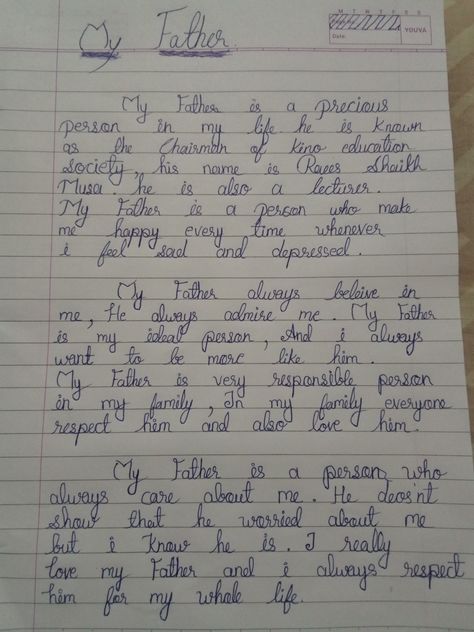 My Father
M T W T F S S
Date:
YOUVA
My Father is a precious
person in my life. he is known
as the Chairman of kino education
society, his name is Raees Shaikh
Musa. he is also a lecturer.
My Father is a person who make
me happy every time whenever
i feel sad and depressed.
My Father always beleive in
me, He always admire me. My Father
is my ideal person, And i always
want to be more like him.
My Father is very responsible person
in my family, In my family everyone
respect him and also love him.
My Father is a person who
always care about me. He deosnt
show that he worried about me
but i know he is. I really
love my Father and i always respect
him for my whole life.